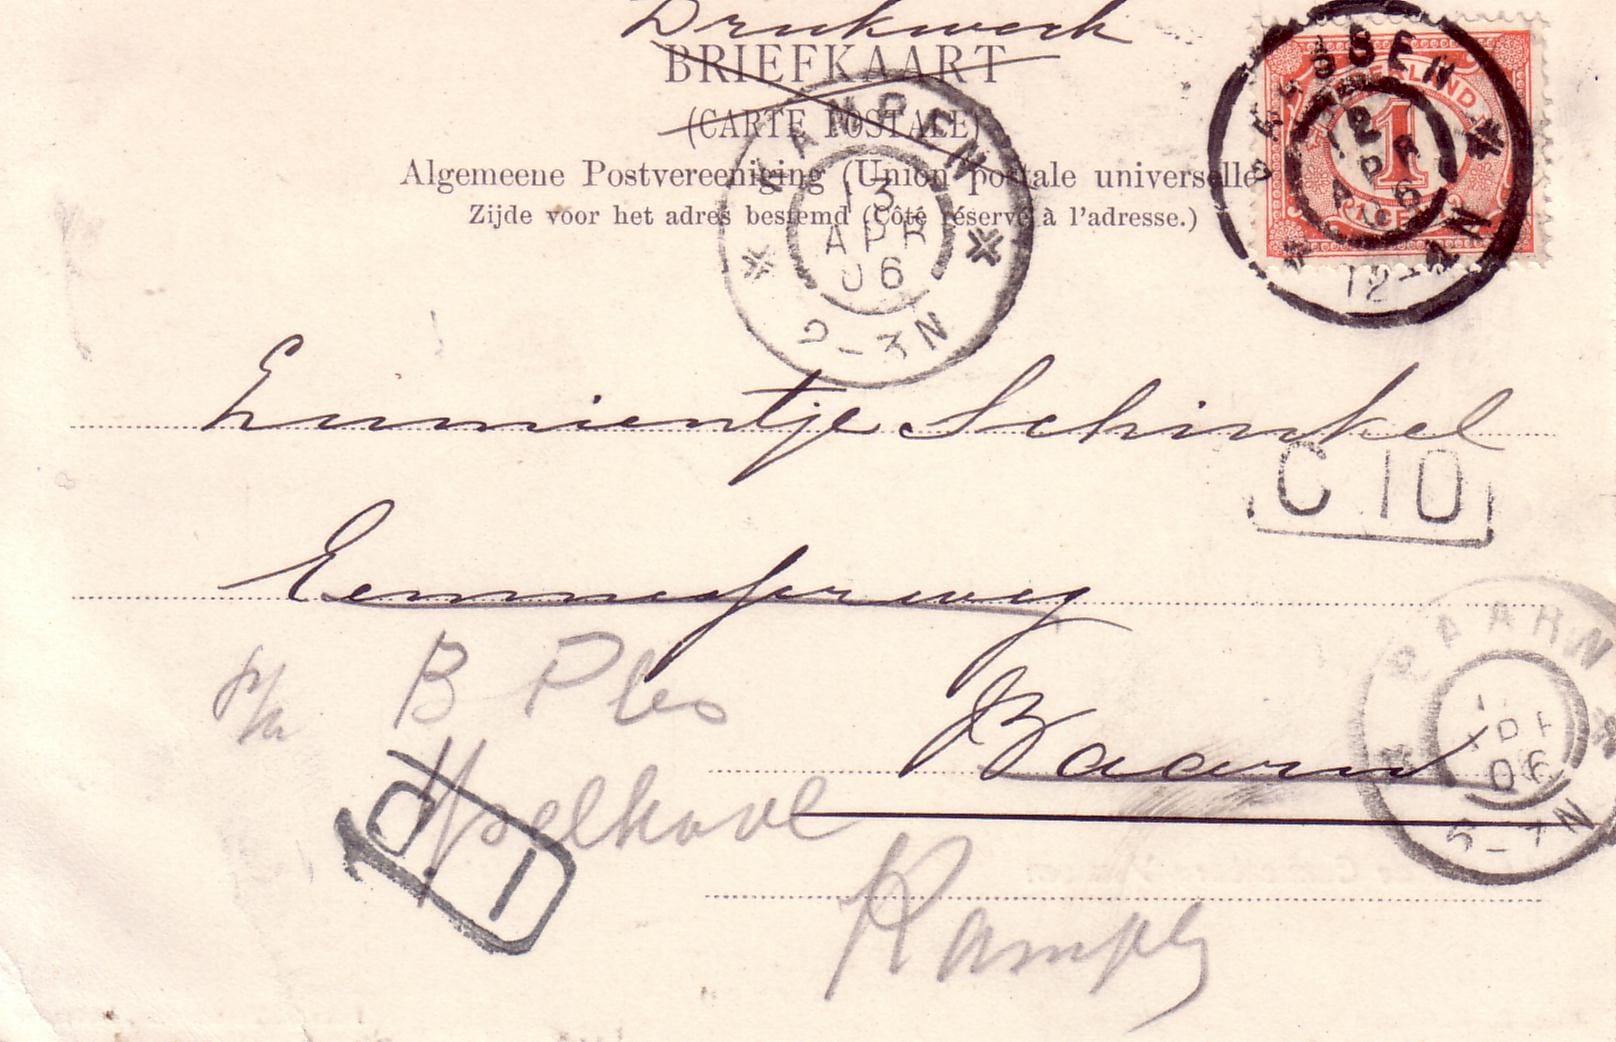 Drukwerk
BRIEFKAART
(CARTE POSTALE)
Algemeene Postvereeniging (Union postale universelle
Zijde voor het adres bestemd (Côté réservé à l'adresse.)
KAMPEN
13
APR
06
2-3N
SEN
12
APR
06
12-1N
1
Schinkel
C 10
Eemnesserweg
p/a B Ples
Baarn
BAARN
APR
06
Kampen